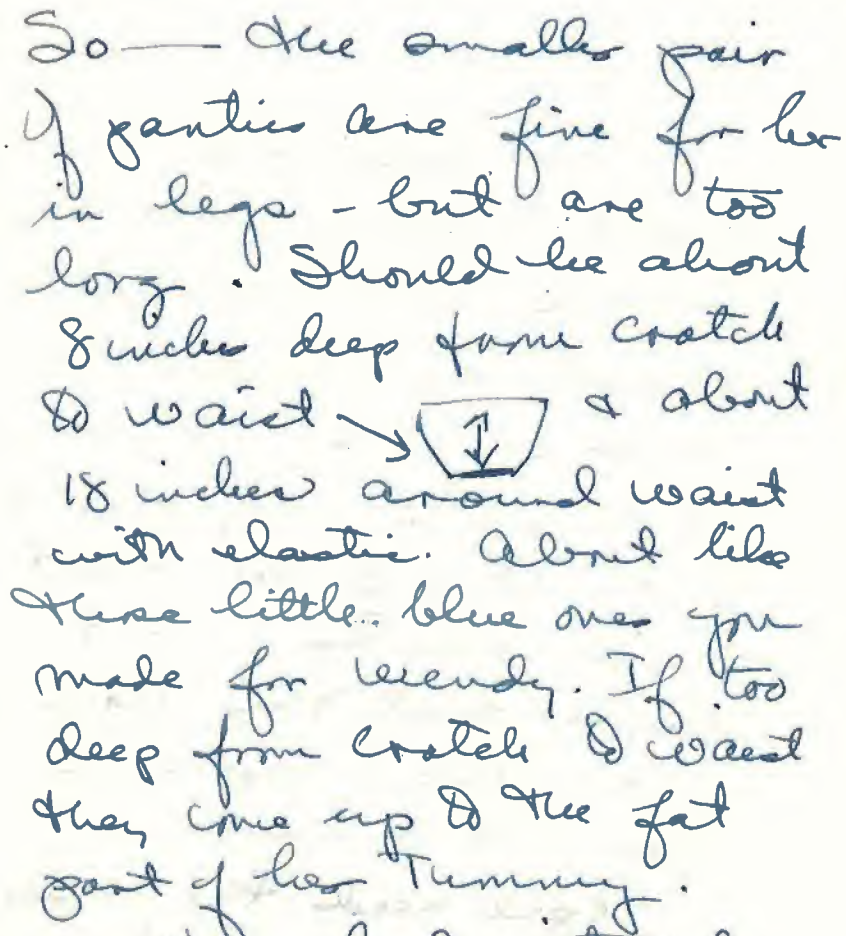 So — the smaller pair
of panties are fine for her
in legs - but are too
long. Should be about
8 inches deep from crotch
to waist & about
18 inches around waist
with elastic. About like
those little blue ones you
made for Wendy. If too
deep from crotch to waist
they come up to the fat
part of her Tummy.